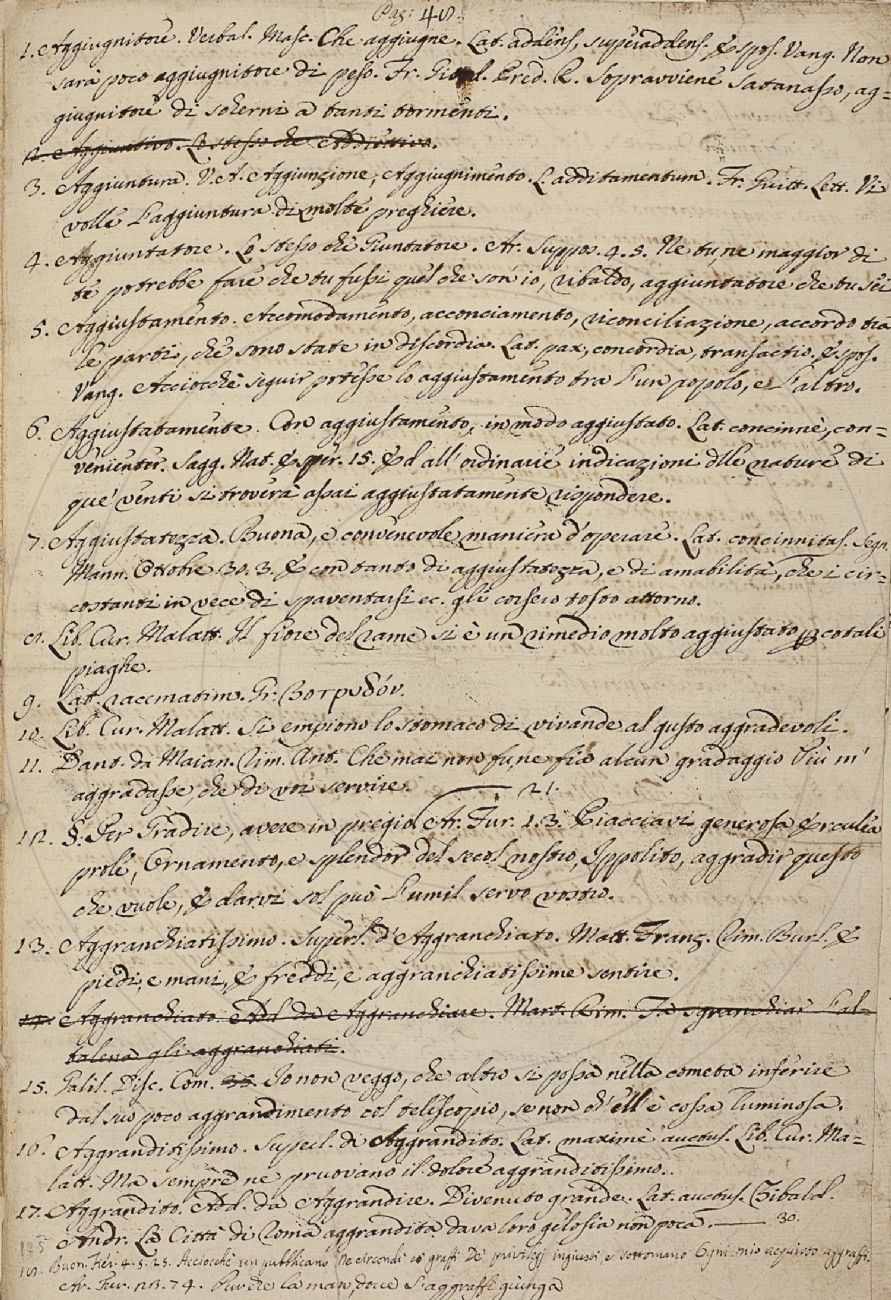 Pag: 48.
1. Aggiugnitore. Verbal. Masc. Che aggiugne. Lat. addens, superaddens. Espos. Vang. Non
sarà poco aggiugnitore di peso. Fr. Giord. Pred. R. Sopravviene Satanasso, ag=
giugnitore di scherni a tanti tormenti.
2. Aggiuntivo. Lo stesso che Addiettivo.
3. Aggiuntura. V. A. Aggiunzione, Aggiugnimento. L. additamentum. Fr. Guitt. Lett. Vi
volle l'aggiuntura di molte preghiere.
4. Aggiuntatore. Lo stesso che Giuntatore. Ar. Suppos. 4. 5. Ne tu, ne maggior di
te potrebbe fare che tu fussi quel che son' io, ribaldo, aggiuntatore che tu sei
5. Aggiustamento. Accomodamento, acconciamento, riconciliazione, accordo tra
le parti, che sono state in discordia. Lat. pax, concordia, transactio. Espos.
Vang. Acciocchè seguir potesse lo aggiustamento tra l'un popolo, e l'altro.
6. Aggiustatamente. Con aggiustamento, in modo aggiustato. Lat. concinnè, con=
venienter. Sagg. Nat. Esper. 15. Ed all' ordinarie indicazioni dlle nature di
que' venti si troverà assai aggiustatamente rispondere.
7. Aggiustatezza. Buona, e convenevole maniera d'operare. Lat. concinnitas. Segn.
Mann. Ottobre 30. 3. E con tanto di aggiustatezza, e di amabilità, che i cir=
costanti in vece di spaventarsi ec. gli corsero tosto attorno.
8. Lib. Cur. Malatt. Il fiore del rame si è un rimedio molto aggiustato cotali
piaghe.
9. Lat. racematim. Gr. βοτρυδόν.
10. Lib. Cur. Malatt. Si empiono lo stomaco di vivande al gusto aggradevoli.
11. Dant. da Maian. Rim. Ant. Che mai non fu, ne fia alcun gradaggio Più m'
aggradasse, che di voi servire.
21.
12. §. Per Gradire, avere in pregio. Ar. Fur. 1. 3. Piacciavi generosa Erculea
prole, Ornamento, e splendor del secol nostro, Ippolito, aggradir questo
che vuole, E darvi sol può l'umil servo vostro.
13. Aggranchiatissimo. Superl. d'Aggranchiato. Matt. Franz. Rim. Burl. E
piedi, e mani, e freddi, e aggranchiatissime sentire.
14. Aggranchiato. Add. da Aggranchiare. Matt. Rim. Fa sgranchiar l'al=
balena gli aggranchiati.
15. Galil. Disc. Com. 35. Io non veggo, che altro si possa nella cometa inferire
dal suo poco aggrandimento col teliscopio, se non ch'ell' è cossa luminosa.
16. Aggranditissimo. Superl. di Aggrandito. Lat. maximè auctus. Lib. Cur. Ma=
latt. Ma sempre ne pruovano il dolore aggranditissimo.
17. Aggrandito. Add. da Aggrandire. Divenuto grande. Lat. auctus. Tibald.
Andr. La Città di Roma aggrandita dava loro gelosia non poca. 30.
18. Buon. Fier. 4. 5. 25. Acciocchè un pubblicano Ne circondi e graffi De' privilegj ingiussi e sottomano Ogni mio acquisto aggraffi.
Ar. Fur. 23. 74. Pur che la man, dove s'aggraffi giunga